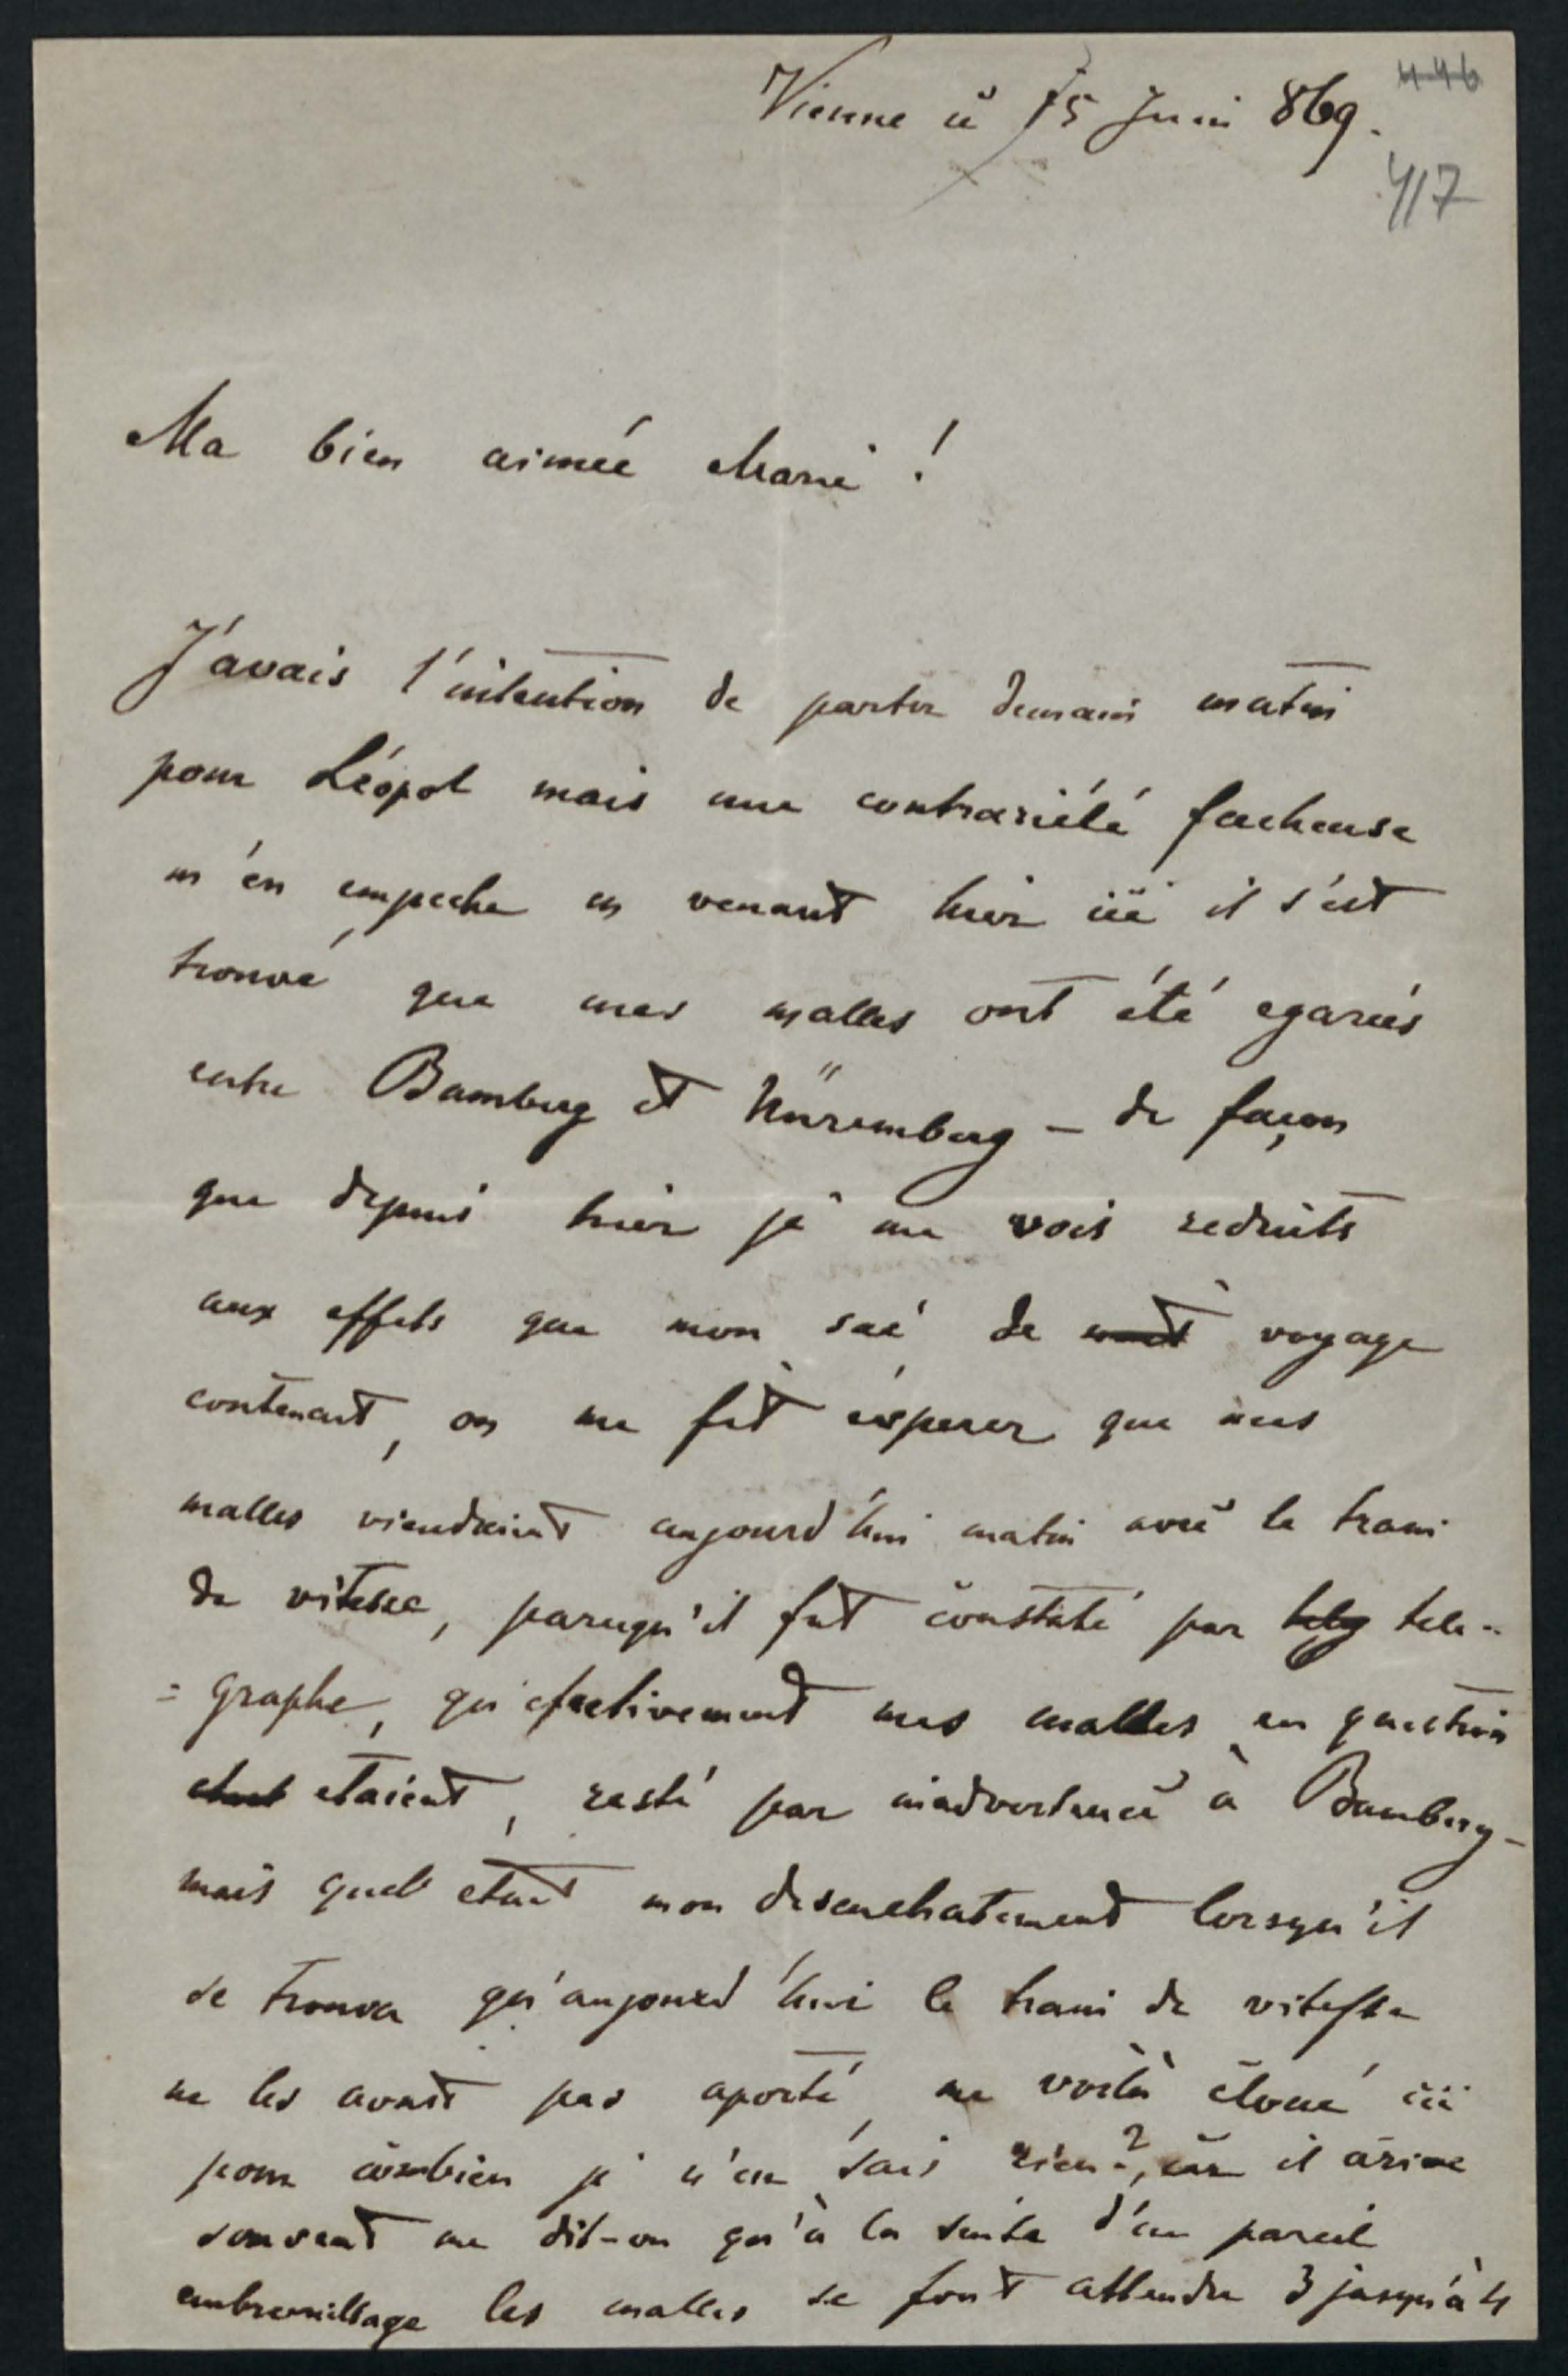 Vienne ci 15 Juin 869.
446
417
Ma bien aimée Marie !
J'avais l'intention de partir demain matin
pour Léopol mais une contrariété facheuse
m'en empeche en venant hier ici il s'est
trouvé que mes malles ont été egarées
entre Bamberg et Nüremberg – de façon
que depuis hier je me vois reduits
aux effets que mon sac de voyage
contenait, on me fit ésperer que mes
malles viendraient aujourd'hui matin avec le train
de vitesse, parcequ'il fut constaté par tele-
=graphe, qu'efectivement mes malles en question
etaient, resté par inadvertence à Bamberg –
mais quel etait mon desenchatement lorsqu'il
se trouva qu'aujourd'hui le train de vitesse
ne les avait pas aporté, me voilà cloué ici
pour combien je n'en sais rien ?, car il arive
souvent me dit-on qu'à la suite d'un pareil
embrouillage les malles se font attendre 3 jusqu'à 4